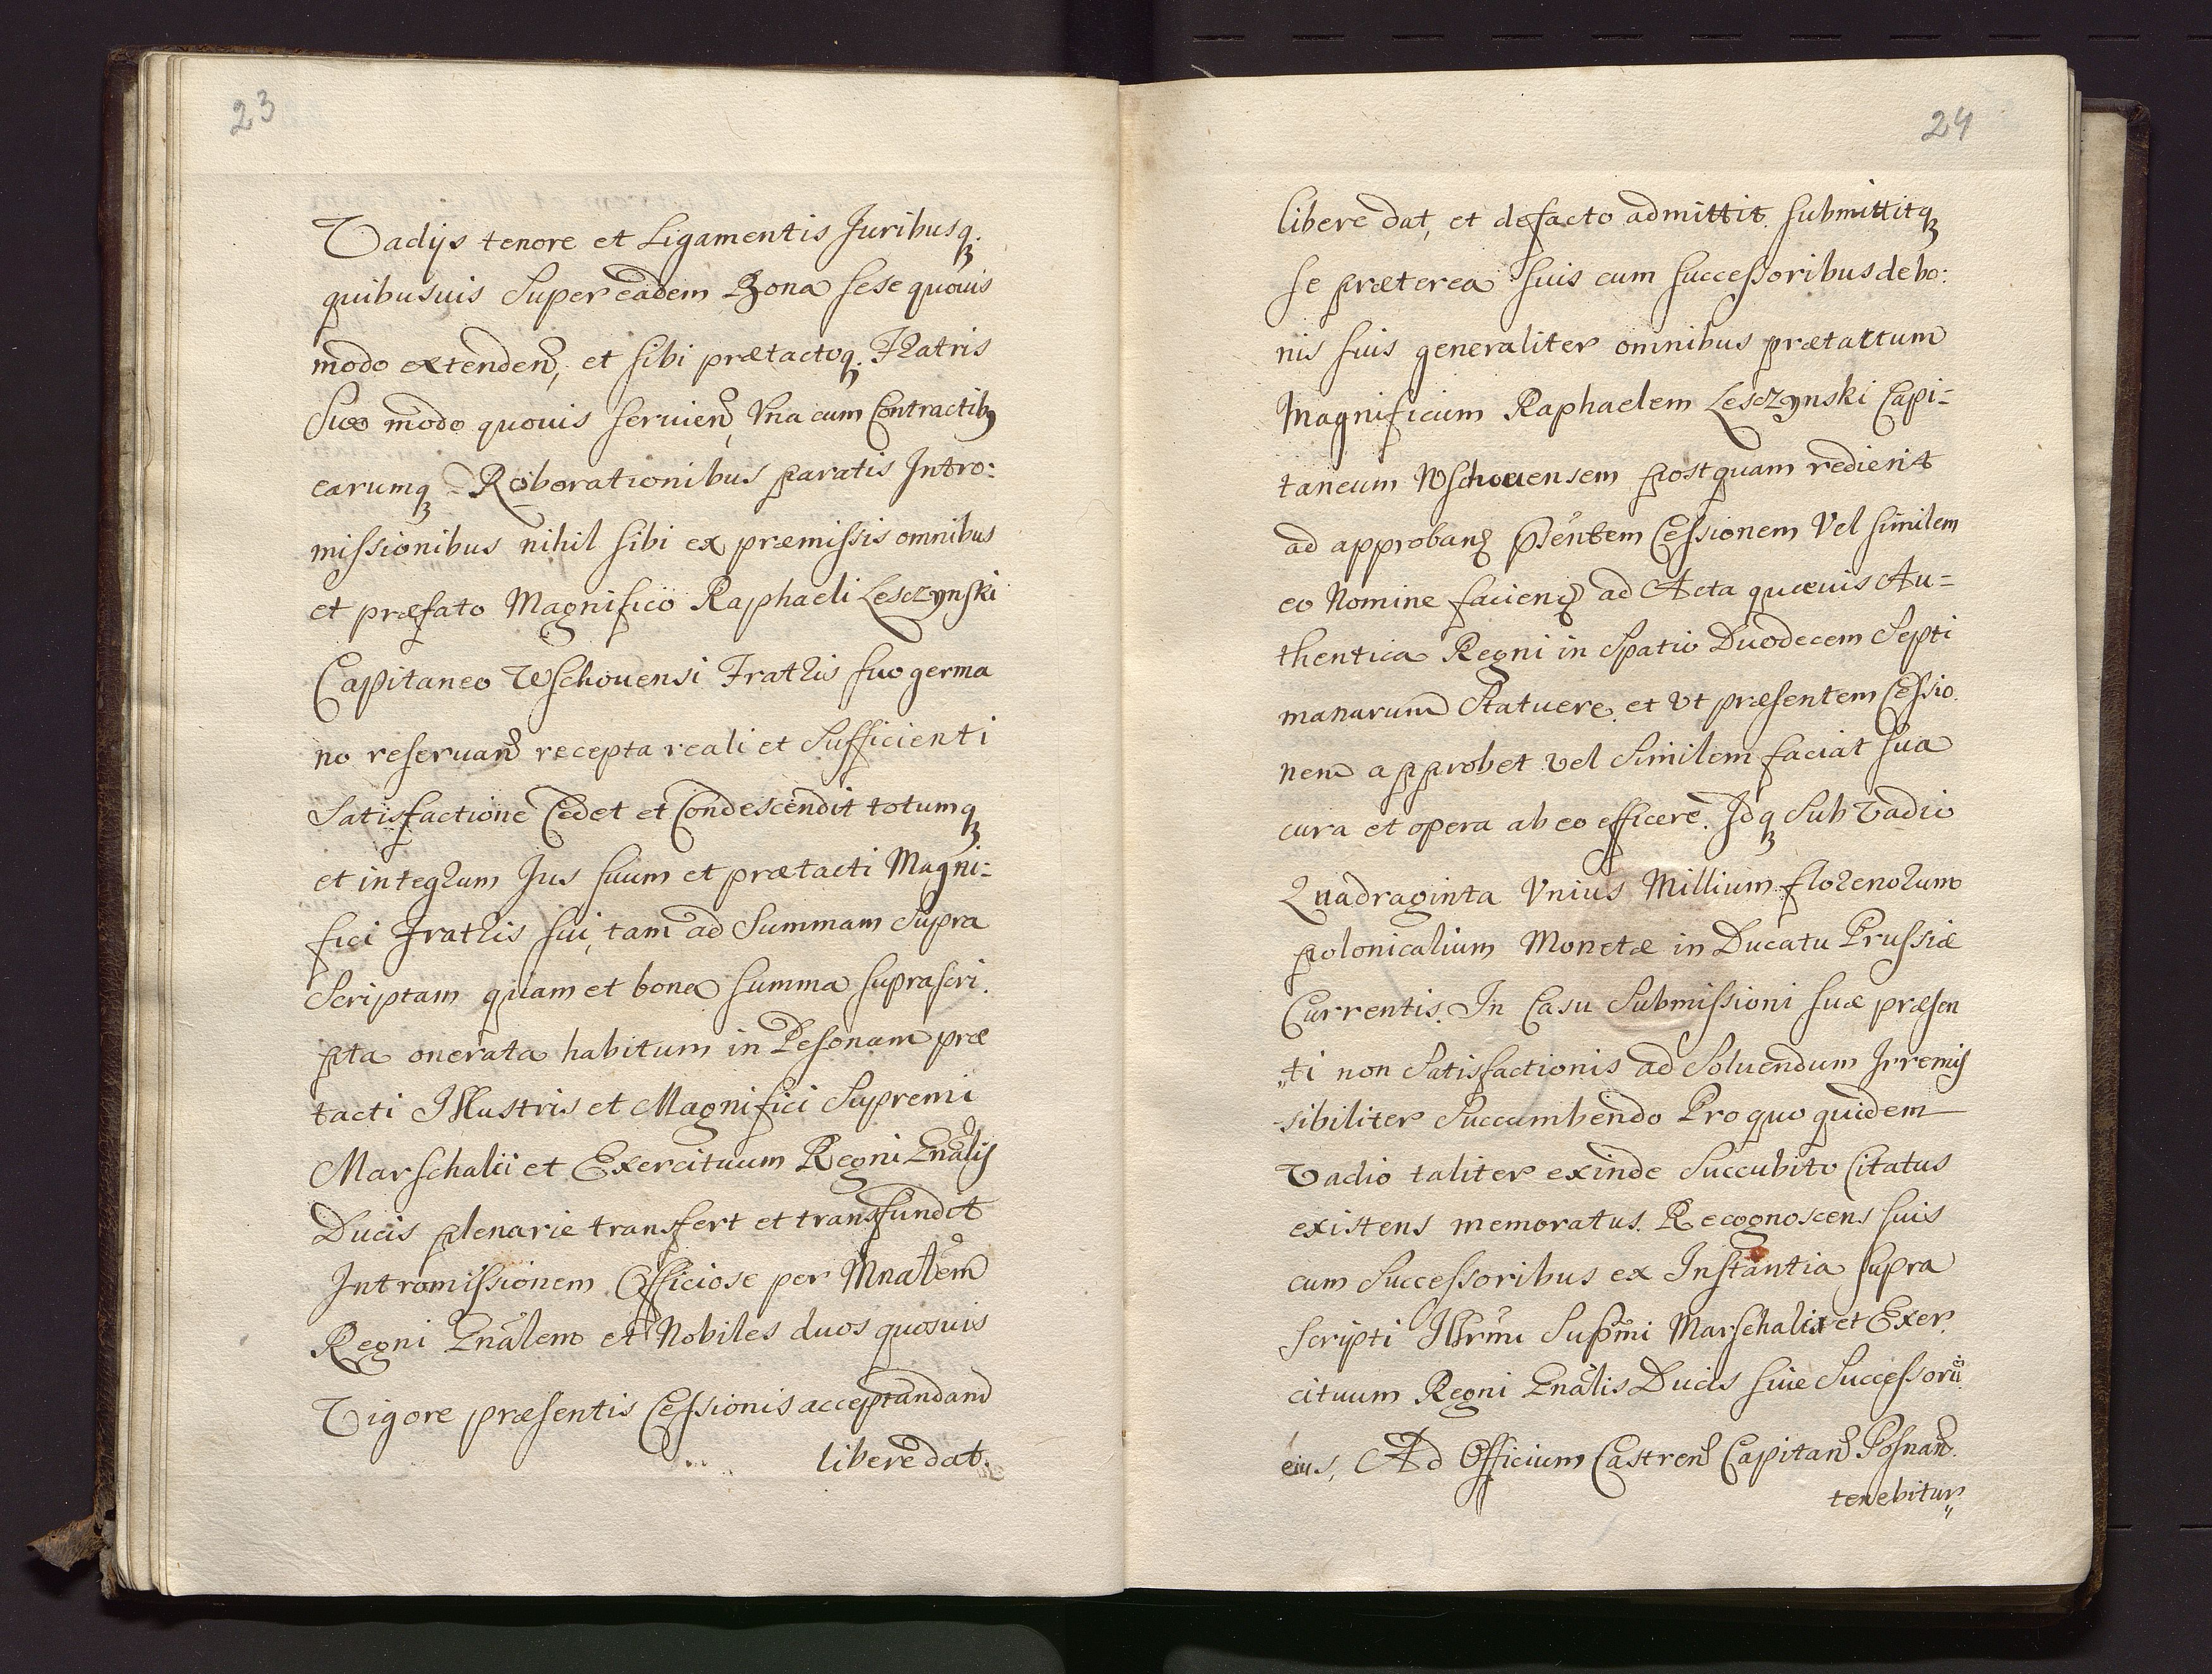 23
Vadijs tenore et Ligamentis Juribusq3
quibusuis Super eadem Bona sese quouis
modo extenden, et sibi prætactoq3 Fratris
Suo modo quouis seruien, Vna cum Contractibq
earumq3 Roborationibus paratis Intro:
missionibus nihil sibi ex præmissis omnibus
et præfato Magnifico Raphaeli Lesczynski
Capitaneo Wschouensi Fratris suo germa
no reseruan recepta reali et Sufficienti
Satisfactione Cedet et Condescendit totumq3
et integrum Jus suum et prætacti Magni=
fici Fratris sui, tam ad Summam Supra
Scriptam quam et bona summa suprascri.
pta onerata habitum in Pesonam præ
tacti Illustris et Magnifici Supremi
Marschalii et Exercituum Regni Gnalis
Ducis plenarie transfert et transfundit
Intromissionem Officiose per Mnalem
Regni Gnalem et Nobiles duos quosuis
Vigore præsentis Cessionis acceptandam
libere dat.
24
libere dat, et defacto admittit. submittitq3
se præterea suis cum successoribus de bo:
nis suis generaliter omnibus prætattum
Magnificum Raphaelem Lesczynski Capi=
taneum Wschouensem postquam redierit
ad approband pſentem Cessionem Vel similem
eo Nomine faciend ad Acta quæuis Au=
thentica Regni in Spatio Duodecem Septi
manarum Statuere, et Vt præsentem Cessio
nem approbet vel Similem faciat sua
cura et opera ab eo efficere. Idq3 Sub Vadio
Quadraginta Vnius Millium florenorum
polonicalium Monetæ in Ducatu Prussiæ
Currentis. In Casu Submissioni suæ præsen
„ti non Satisfactionis ad Soluendum Irremis
-sibiliter Succumbendo Pro quo quidem
Vadio taliter exinde Succubito Citatus
existens memoratus. Recognoscens suis
cum Successoribus ex Instantia supra
scripti Illrmi Supmi Marschalis et Exer.
cituum Regni Gnalis Ducis siue Successorū
eius, Ad Officium Castren Capitan Posnan.
tenebitur„